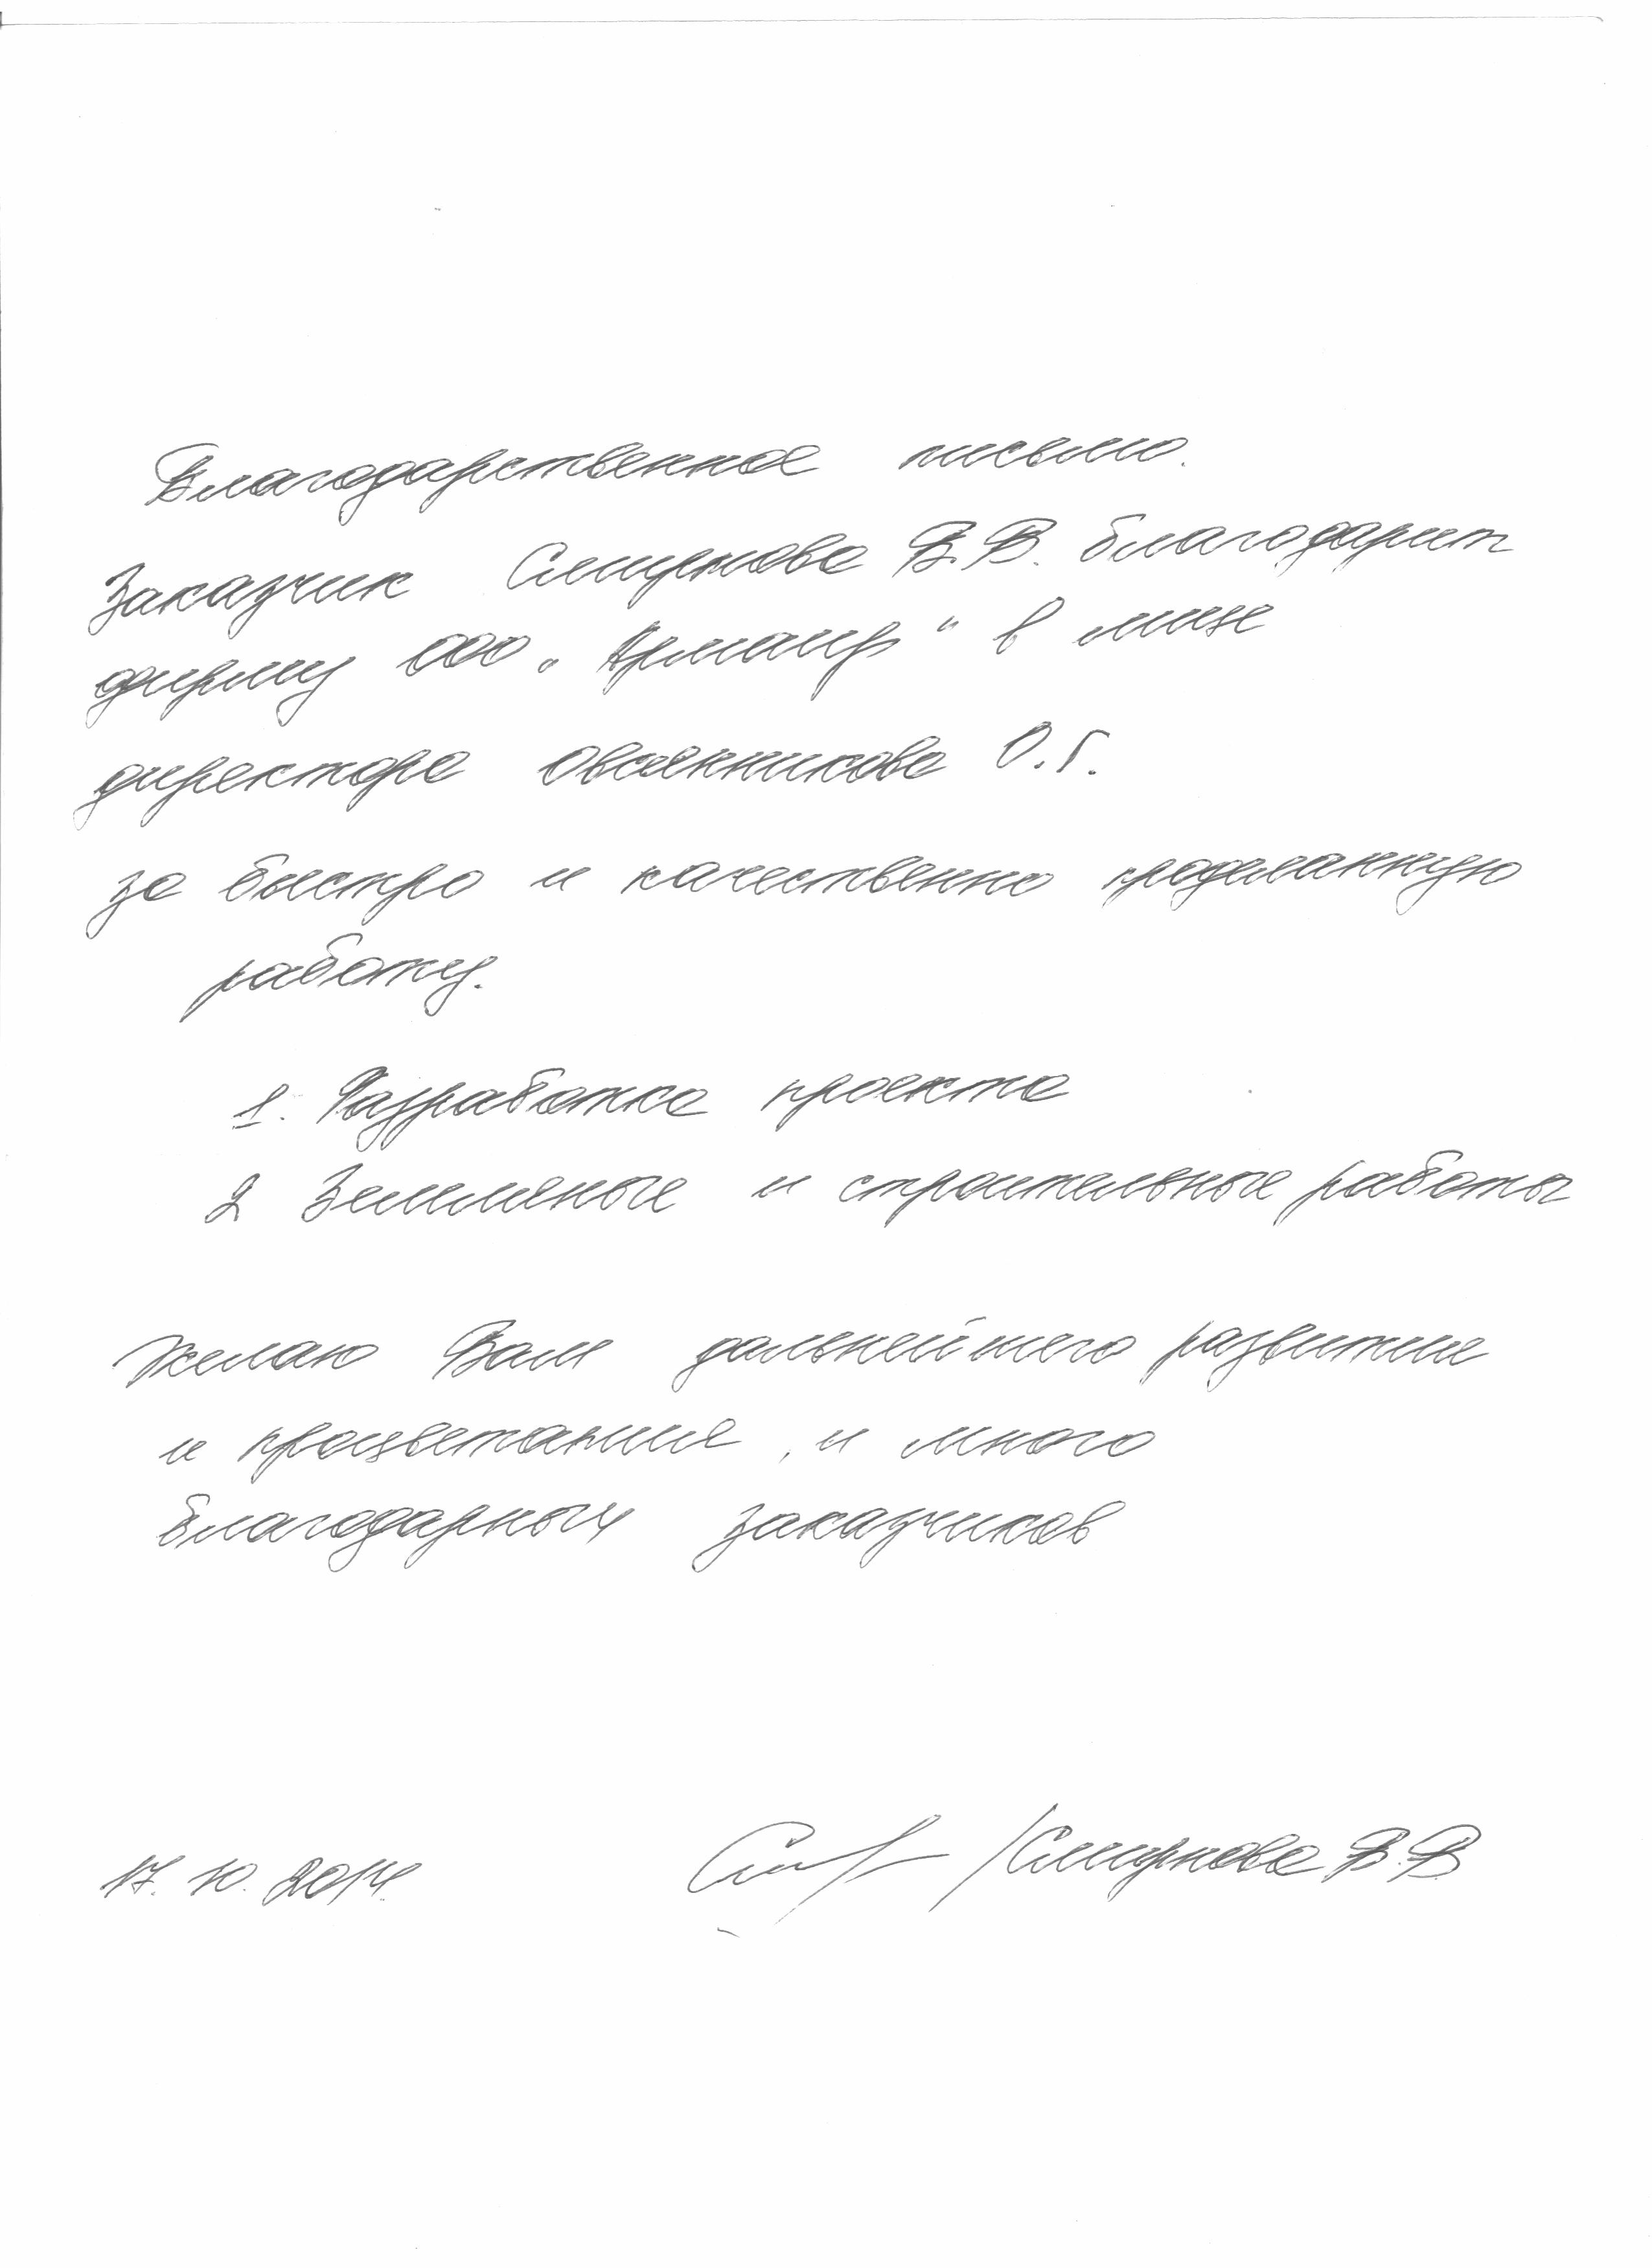 Благодарственное письмо.
Заказчик Смирнова В.В. благодарит
фирму ООО „Армаир" в лице
директора Овсянникова О.Г.
за быстро и качественно проделанную
работу.
1. Разработка проекта
2 Земляные и строительные работы
Желаю Вам дальнейшего развития
и процветания, и много
благодарных заказчиков
17.10.2014. /Смирнова В.В